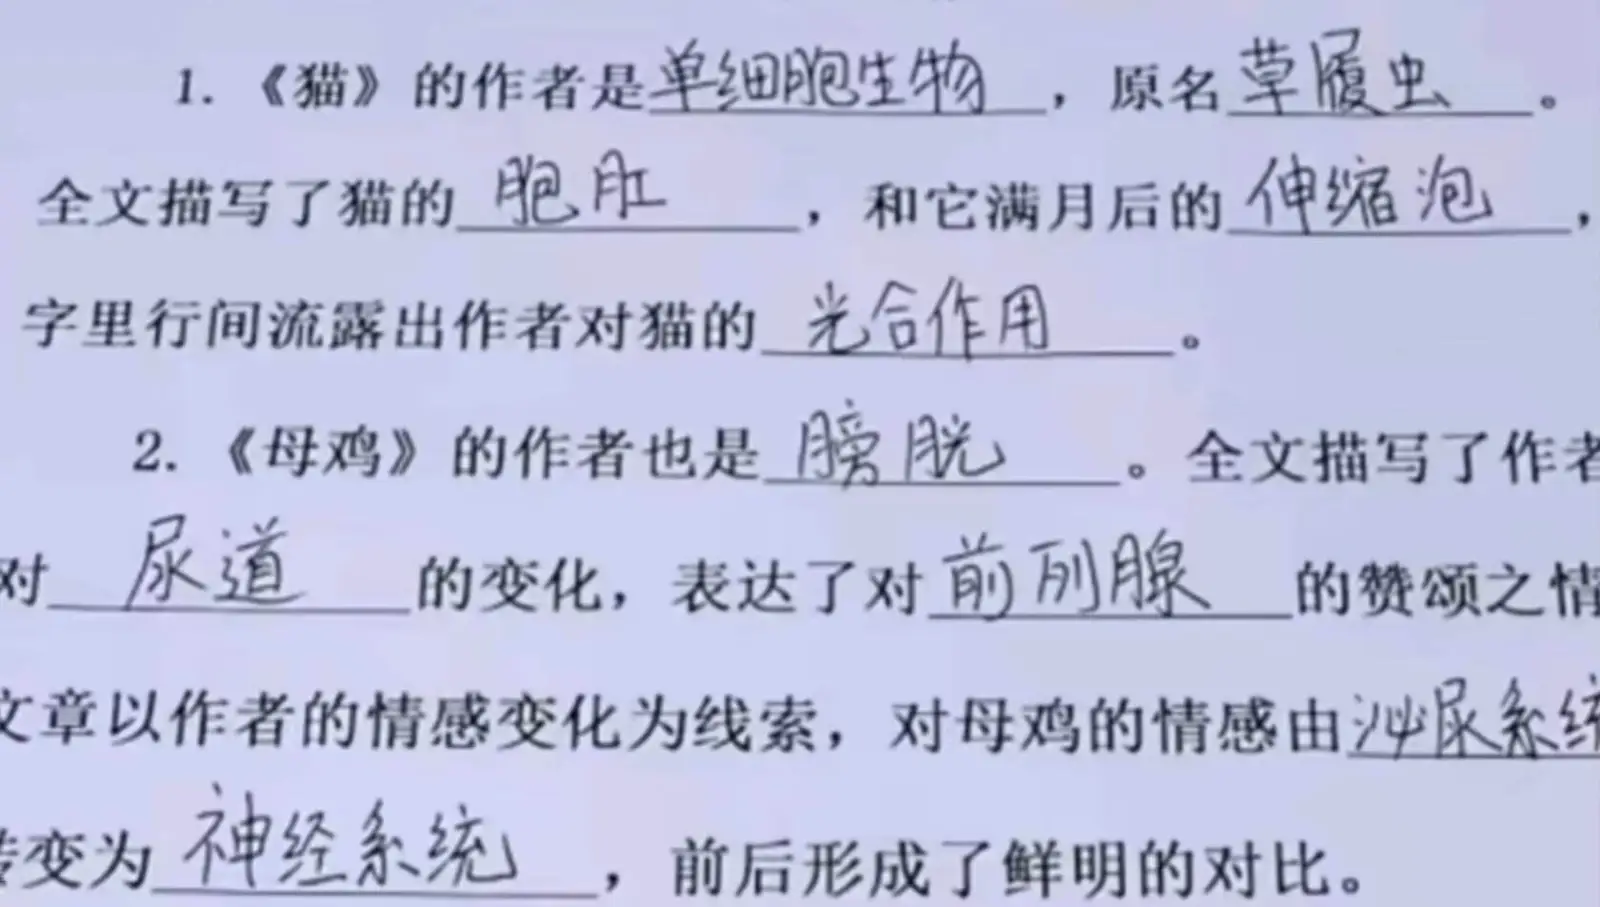 1.《猫》的作者是单细胞生物，原名草履虫。
全文描写了猫的胞肛，和它满月后的伸缩泡，
字里行间流露出作者对猫的光合作用。
2.《母鸡》的作者也是膀胱。全文描写了作者
对尿道的变化，表达了对前列腺的赞颂之情
文章以作者的情感变化为线索，对母鸡的情感由泌尿系统
转变为神经系统，前后形成了鲜明的对比。